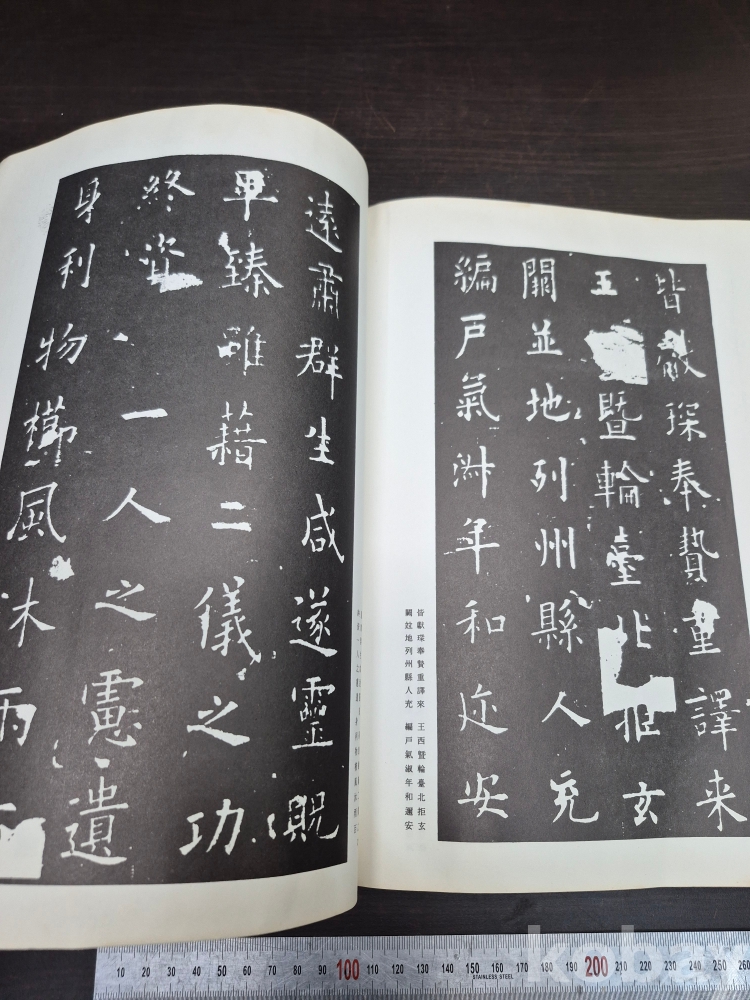 皆獻琛奉贄重譯来
王暨輪臺北拒玄
闕並地列州縣人充
編戶氣淑年和迩安
皆獻琛奉贄重譯來 王西暨輪臺北拒玄
闕竝地列州縣人充 編戶氣淑年和邇安
遠肅群生咸遂靈貺
畢臻雖藉二儀之功
終資一人之慮遺
身利物櫛風沐雨
10 20 30 40 50 60 70 80 90 100 110 120 130 140 150 160 170 180 190 200 210 220 230 240 250 260
STAINLESS STEEL